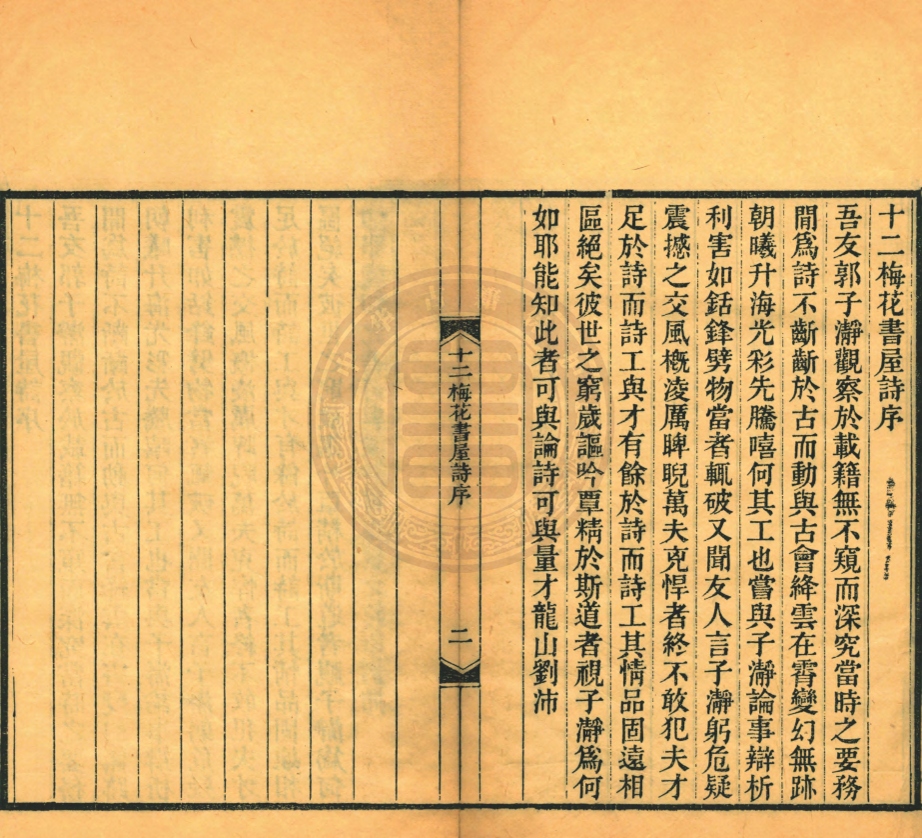 十二梅花書屋詩序
吾友郭子瀞觀察於載籍無不窺而深究當時之要務
閒爲詩不斷斷於古而動與古會絳雲在霄變幻無跡
朝曦升海光彩先騰嘻何其工也嘗與子瀞論事辯析
利害如銛鋒劈物當者輒破又聞友人言子瀞躬危疑
震撼之交風概凌厲睥睨萬夫克悍者終不敢犯夫才
足於詩而詩工與才有餘於詩而詩工其情品固遠相
區絕矣彼世之窮歲謳吟覃精於斯道者視子瀞爲何
如耶能知此者可與論詩可與量才龍山劉沛
十二梅花書屋詩序
二